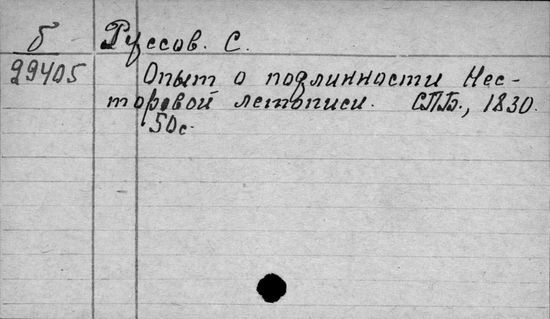 б Руссов. С.
29405 Опыт о подлинности Нес-
торовой летописи. СПБ., 1830.
50с.